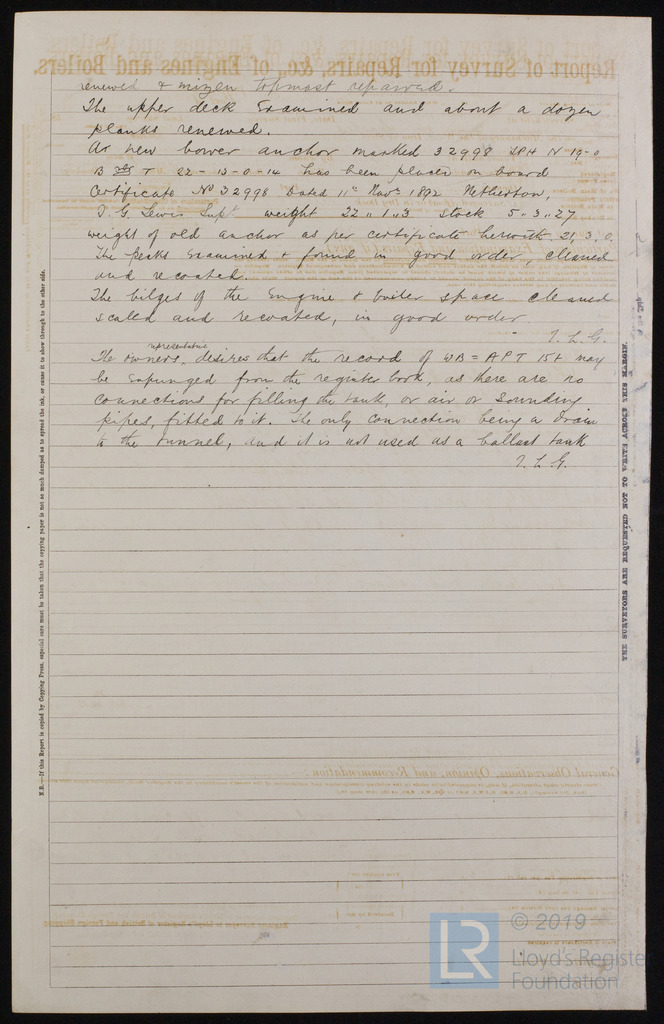 renewed & mizen topmast repaired.
The upper deck Examined and about a dozen
planks renewed.
A new bower anchor marked 32998 LPH N 19-0
B T 22-13-0-14 has been placed on board
Certificate No 32998 Dated 11th Novr 1892 Netherton,
J. G. Lewis Supt weight 22 " 1 " 3 stock 5 " 3 " 27
weight of old anchor as per certificate herewith 21, 3, 0.
The peaks Examined & found in good order, cleaned
and recoated.
The bilges of the Engine & boiler space cleaned
scaled and recoated, in good order
T. L. G.
representative
The owners, desires that the record of WB = APT 15t may
be Expunged from the register book, as there are no
connections for filling the tank, or air or sounding
pipes, fitted to it. The only connection being a drain
to the tunnel, and it is not used as a ballast tank
T. L. G.
N.B.—If this Report is copied by Copying Press, especial care must be taken that the copying paper is not so much damped as to spread the ink, or cause it to show through to the other side.
THE SURVEYORS ARE REQUESTED NOT TO WRITE ACROSS THIS MARGIN
Report of Survey for Repairs, &c., of Engines and Boilers.
General Observations, Opinion, and Recommendation:
LR
© 2019
Lloyd's Register
Foundation